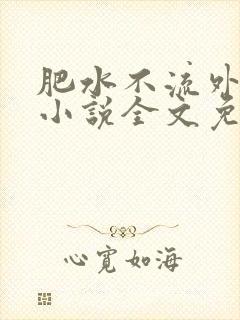 肥水不流外
小说全文免
心宽如海